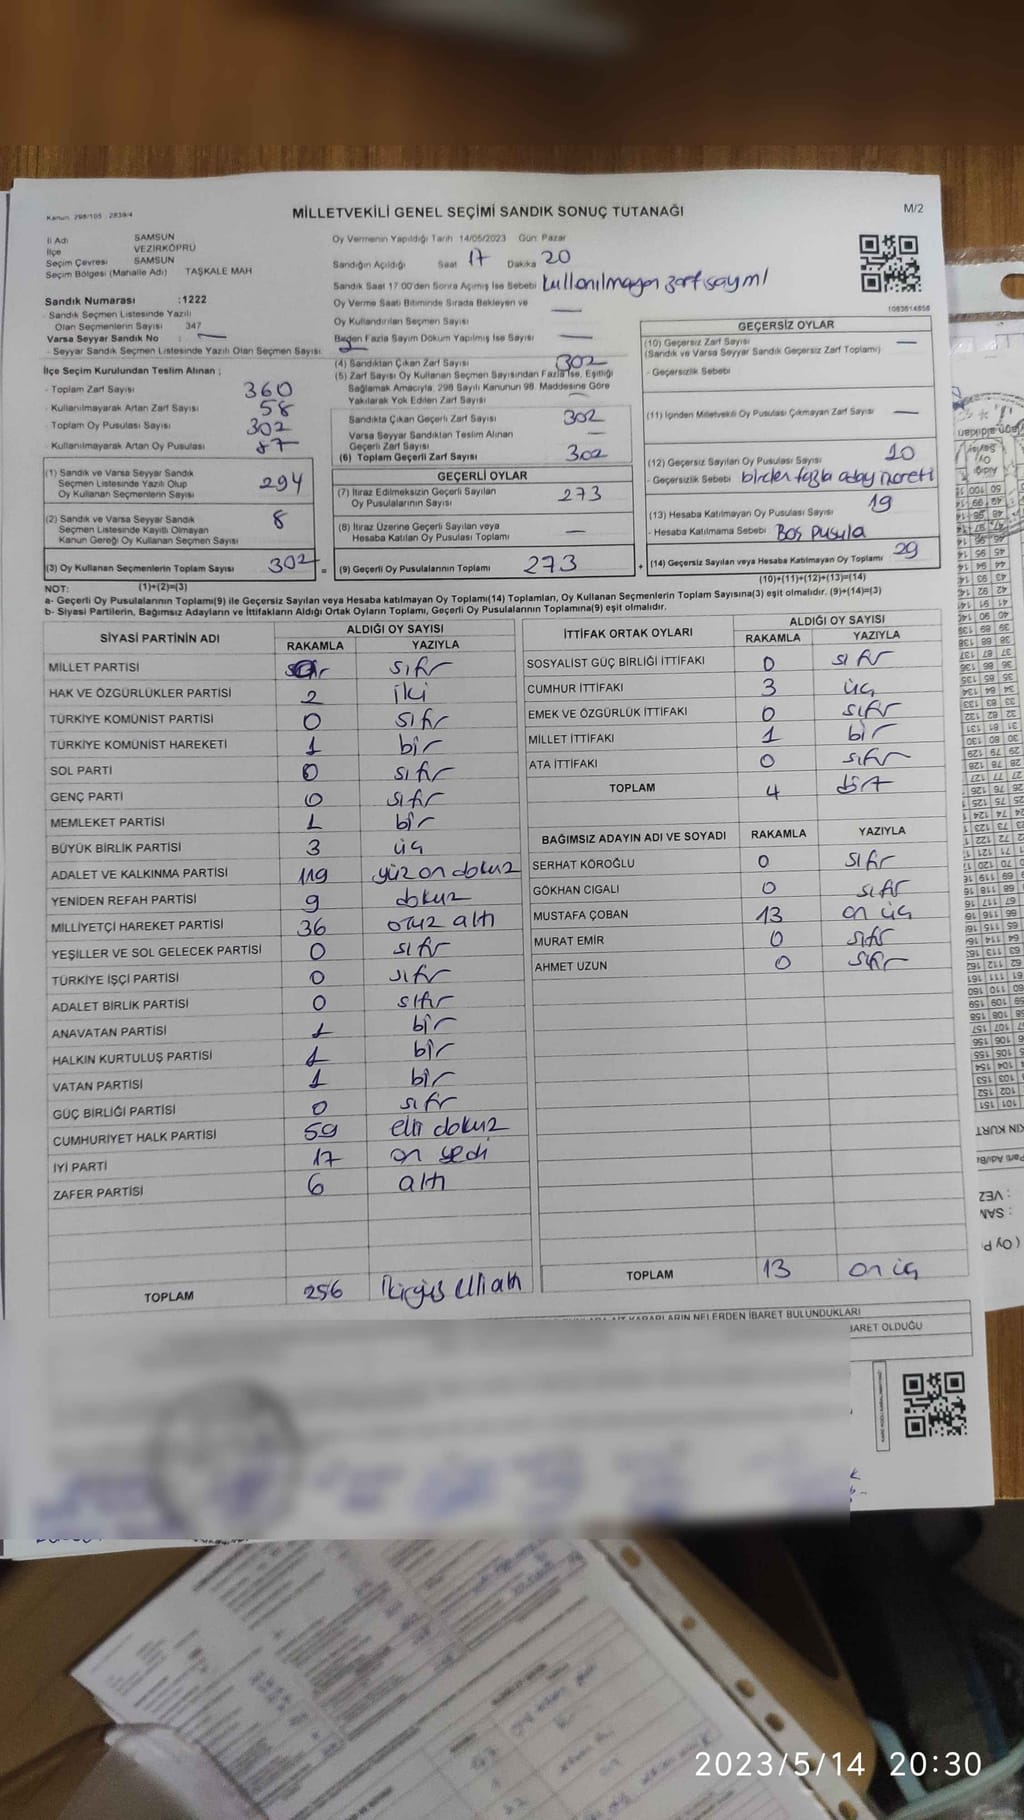 Kanun: 298/105 2839/4
MİLLETVEKİLİ GENEL SEÇİMİ SANDIK SONUÇ TUTANAĞI
M/2
İl Adı SAMSUN
İlçe VEZİRKÖPRÜ
Seçim Çevresi SAMSUN
Seçim Bölgesi (Mahalle Adı) TAŞKALE MAH
Sandık Numarası :1222
- Sandık Seçmen Listesinde Yazılı
Olan Seçmenlerin Sayısı 347
Varsa Seyyar Sandık No : —
- Seyyar Sandık Seçmen Listesinde Yazılı Olan Seçmen Sayısı:
Oy Vermenin Yapıldığı Tarih 14/05/2023 Gün: Pazar
Sandığın Açıldığı Saat 17 Dakika 20
Sandık Saat 17:00'den Sonra Açımış İse Sebebi kullanılmayan zarf sayımı
Oy Verme Saati Bitiminde Sırada Bekleyen ve
Oy Kullandırılan Seçmen Sayısı —
Birden Fazla Sayım Döküm Yapılmış İse Sayısı —
1083614858
İlçe Seçim Kurulundan Teslim Alınan ;
- Toplam Zarf Sayısı 360
- Kullanılmayarak Artan Zarf Sayısı 58
- Toplam Oy Pusulası Sayısı 302
- Kullanılmayarak Artan Oy Pusulası 87
(1) Sandık ve Varsa Seyyar Sandık
Seçmen Listesinde Yazılı Olup
Oy Kullanan Seçmenlerin Sayısı 294
(2) Sandık ve Varsa Seyyar Sandık
Seçmen Listesinde Kayıtlı Olmayan
Kanun Gereği Oy Kullanan Seçmen Sayısı 8
(3) Oy Kullanan Seçmenlerin Toplam Sayısı 302 =
(1)+(2)=(3)
(4) Sandıktan Çıkan Zarf Sayısı 302
(5) Zarf Sayısı Oy Kullanan Seçmen Sayısından Fazla İse, Eşitliği
Sağlamak Amacıyla, 298 Sayılı Kanunun 98. Maddesine Göre
Yakılarak Yok Edilen Zarf Sayısı —
Sandıkta Çıkan Geçerli Zarf Sayısı 302
Varsa Seyyar Sandıktan Teslim Alınan
Geçerli Zarf Sayısı —
(6) Toplam Geçerli Zarf Sayısı 302
GEÇERLİ OYLAR
(7) İtiraz Edilmeksizin Geçerli Sayılan
Oy Pusulalarının Sayısı 273
(8) İtiraz Üzerine Geçerli Sayılan veya
Hesaba Katılan Oy Pusulası Toplamı —
(9) Geçerli Oy Pusulalarının Toplamı 273 +
GEÇERSİZ OYLAR
(10) Geçersiz Zarf Sayısı —
(Sandık ve Varsa Seyyar Sandık Geçersiz Zarf Toplamı)
- Geçersizlik Sebebi
(11) İçinden Milletvekili Oy Pusulası Çıkmayan Zarf Sayısı —
(12) Geçersiz Sayılan Oy Pusulası Sayısı 10
- Geçersizlik Sebebi birden fazla aday işareti
(13) Hesaba Katılmayan Oy Pusulası Sayısı 19
- Hesaba Katılmama Sebebi Boş pusula
(14) Geçersiz Sayılan veya Hesaba Katılmayan Oy Toplamı 29
(10)+(11)+(12)+(13)=(14)
NOT:
a- Geçerli Oy Pusulalarının Toplamı(9) ile Geçersiz Sayılan veya Hesaba katılmayan Oy Toplamı(14) Toplamları, Oy Kullanan Seçmenlerin Toplam Sayısına(3) eşit olmalıdır. (9)+(14)=(3)
b- Siyasi Partilerin, Bağımsız Adayların ve İttifakların Aldığı Ortak Oyların Toplamı, Geçerli Oy Pusulalarının Toplamına(9) eşit olmalıdır.
SİYASİ PARTİNİN ADI ALDIĞI OY SAYISI
RAKAMLA YAZIYLA
MİLLET PARTİSİ sıfır
HAK VE ÖZGÜRLÜKLER PARTİSİ 2 iki
TÜRKİYE KOMÜNİST PARTİSİ 0 sıfır
TÜRKİYE KOMÜNİST HAREKETİ 1 bir
SOL PARTİ 0 sıfır
GENÇ PARTİ 0 sıfır
MEMLEKET PARTİSİ 1 bir
BÜYÜK BİRLİK PARTİSİ 3 üç
ADALET VE KALKINMA PARTİSİ 119 yüz on dokuz
YENİDEN REFAH PARTİSİ 9 dokuz
MİLLİYETÇİ HAREKET PARTİSİ 36 otuz altı
YEŞİLLER VE SOL GELECEK PARTİSİ 0 sıfır
TÜRKİYE İŞÇİ PARTİSİ 0 sıfır
ADALET BİRLİK PARTİSİ 0 sıfır
ANAVATAN PARTİSİ 1 bir
HALKIN KURTULUŞ PARTİSİ 1 bir
VATAN PARTİSİ 1 bir
GÜÇ BİRLİĞİ PARTİSİ 0 sıfır
CUMHURİYET HALK PARTİSİ 59 elli dokuz
İYİ PARTİ 17 on yedi
ZAFER PARTİSİ 6 altı
TOPLAM 256 İkiyüz elli altı
İTTİFAK ORTAK OYLARI ALDIĞI OY SAYISI
RAKAMLA YAZIYLA
SOSYALİST GÜÇ BİRLİĞİ İTTİFAKI 0 sıfır
CUMHUR İTTİFAKI 3 üç
EMEK VE ÖZGÜRLÜK İTTİFAKI 0 sıfır
MİLLET İTTİFAKI 1 bir
ATA İTTİFAKI 0 sıfır
TOPLAM 4 dört
ALDIĞI OY SAYISI
BAĞIMSIZ ADAYIN ADI VE SOYADI RAKAMLA YAZIYLA
SERHAT KÖROĞLU 0 sıfır
GÖKHAN CIGALI 0 sıfır
MUSTAFA ÇOBAN 13 on üç
MURAT EMİR 0 sıfır
AHMET UZUN 0 sıfır
TOPLAM 13 on üç
KARARLARIN NELERDEN İBARET BULUNDUKLARI
BARET OLDUĞU
2023/5/14 20:30